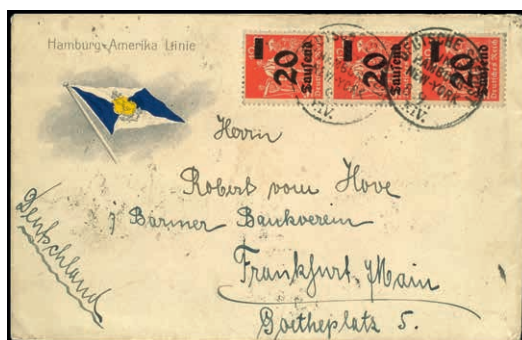 Hamburg-Amerika Linie
20 Tausend
20 Tausend
20 Tausend
Deutsches Reich
DEUTSCHE
HAMBURG
NEW-YORK
XIV.
Herrn
Robert vom Hove
Barmer Bankverein
Frankfurt, Main
Goetheplatz 5.
Deutschland